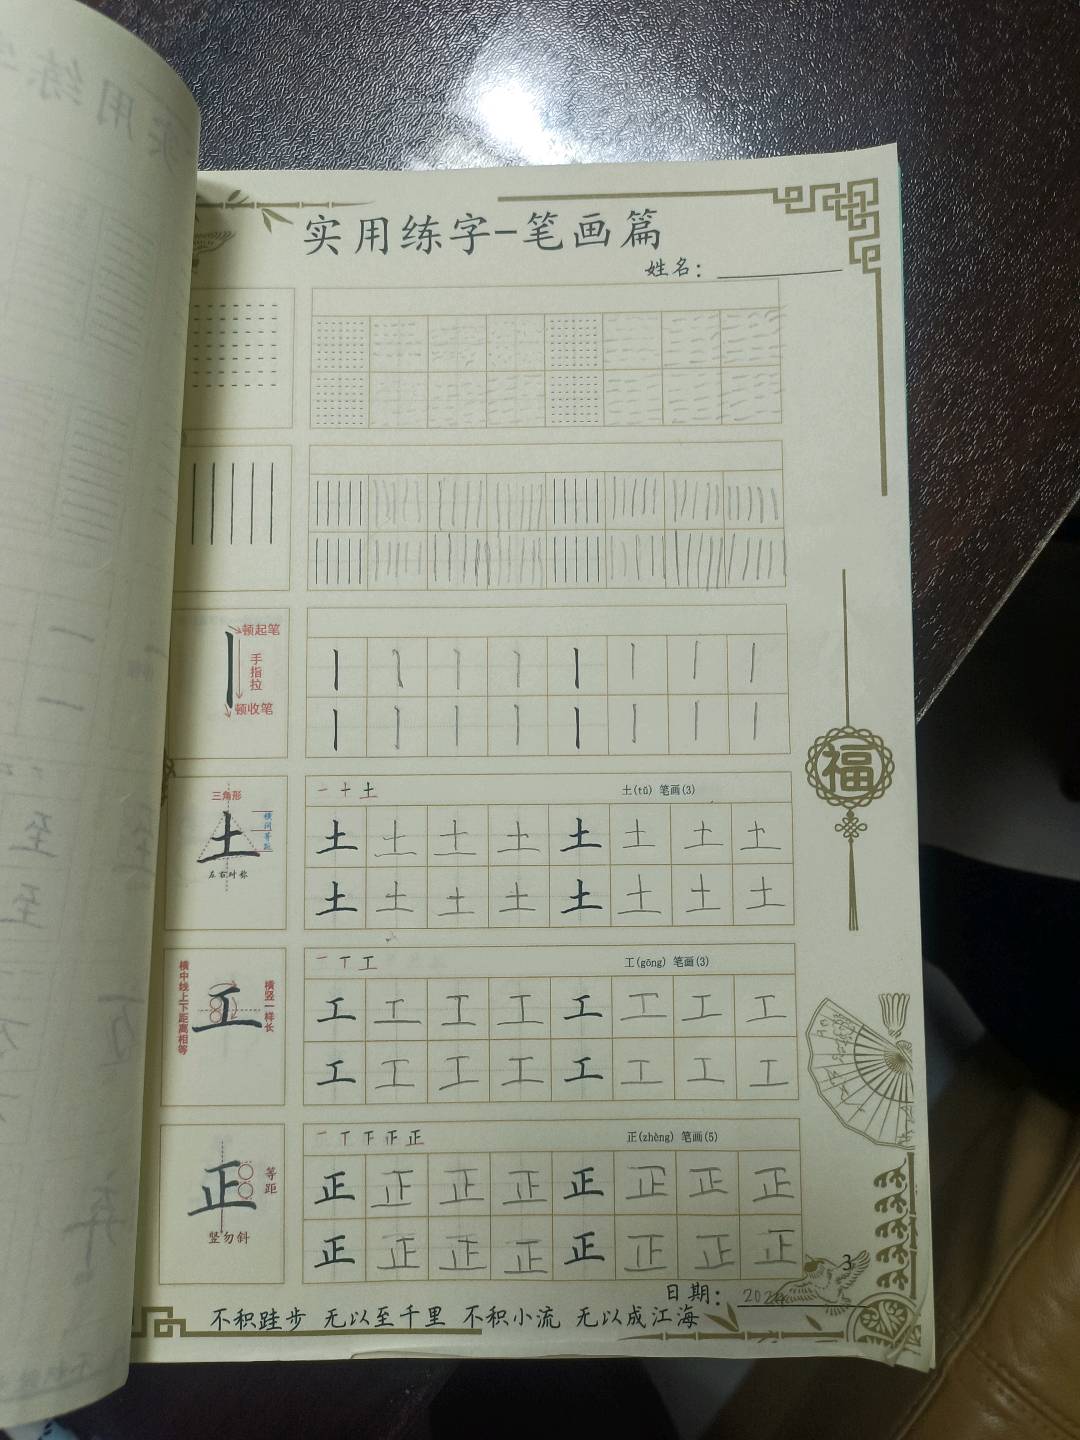 实用练字-笔画篇
姓名：
顿起笔
手指拉
顿收笔
三角形
土
横间等距
左右对称
一 十 土
土(tǔ) 笔画(3)
土 土 土 土 土 土 土 土
土 土 土 土 土 土 土 土
横中线上下距离相等
工
横竖一样长
一 丅 工
工(gōng) 笔画(3)
工 工 工 工 工 工 工 工
工 工 工 工 工 工 工 工
正
等距
竖勿斜
正(zhèng) 笔画(5)
正 正 正 正 正 正 正 正
正 正 正 正 正 正 正 正
福
3
日期：2024
不积跬步 无以至千里 不积小流 无以成江海